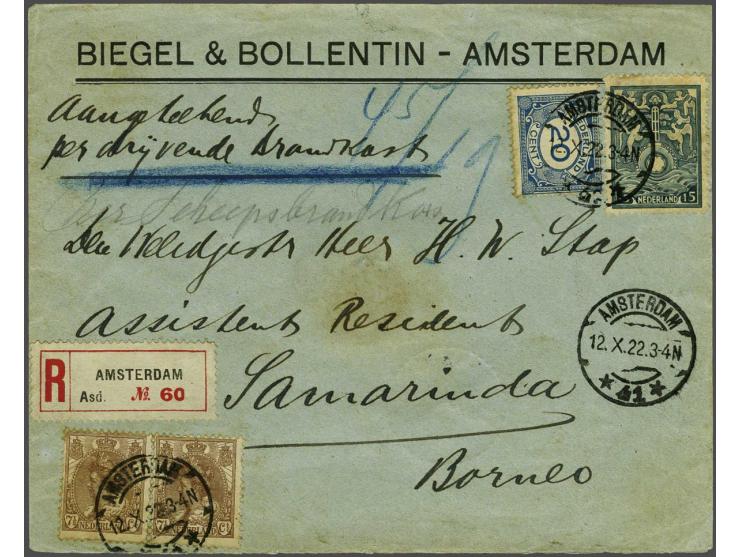 BIEGEL & BOLLENTIN - AMSTERDAM
Aangeteekend
per drijvende brandkast
45
19
per Scheepsbrandkas
Den Weledgestr Heer H. W. Stap
Assistent Resident
Samarinda
Borneo
20
CENT
NEDERLAND
AMSTERDAM
X.22.3-4N
15
NEDERLAND
AMSTERDAM
12.X.22.3-4N
41
R
AMSTERDAM
Asd. No. 60
7½ NEDERLAND ct
7½ NEDERLAND ct
AMSTERDAM
12.X.22.3-4N